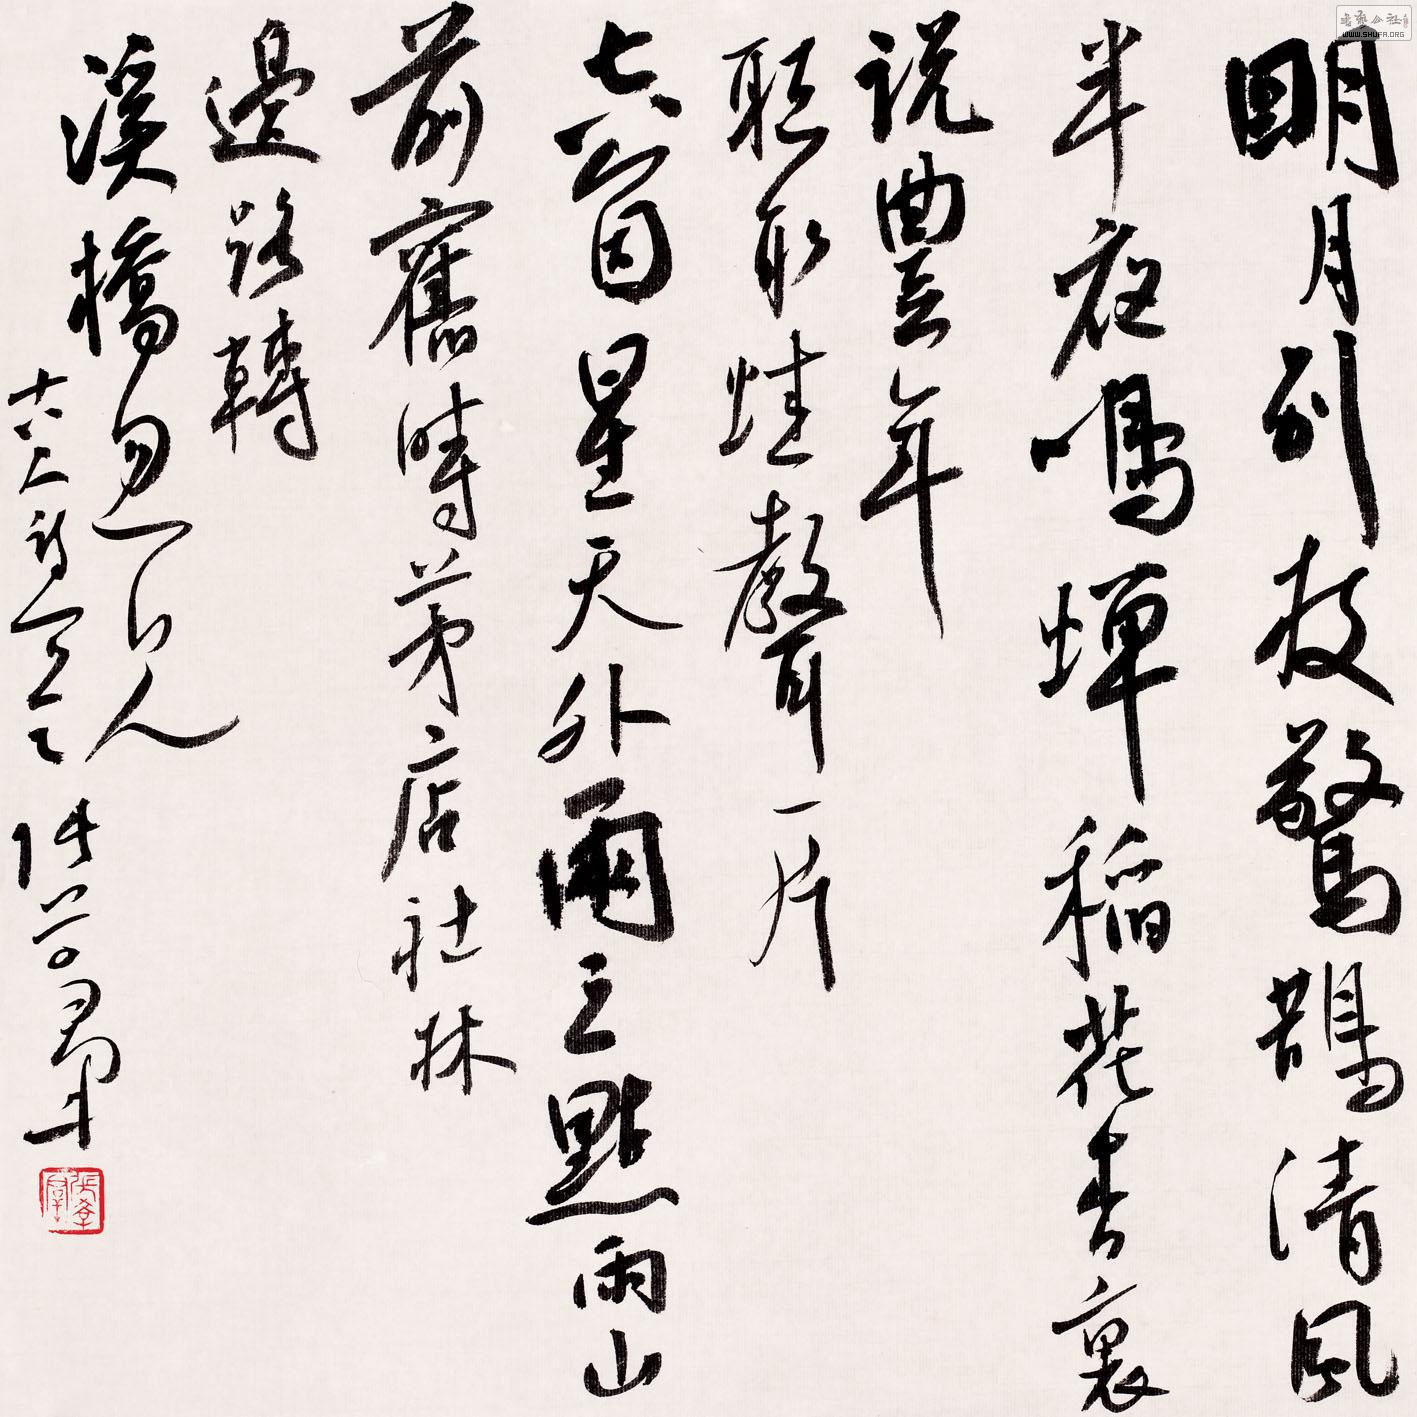 明月別枝驚鵲清風
半夜鳴蟬稻花香裏
説豐年
聽取蛙聲一片
七八箇星天外兩三點雨山
前舊時茅店社林
邊路轉
溪橋忽見
張學群
張學群
書藝公社
WWW.SHUFA.ORG